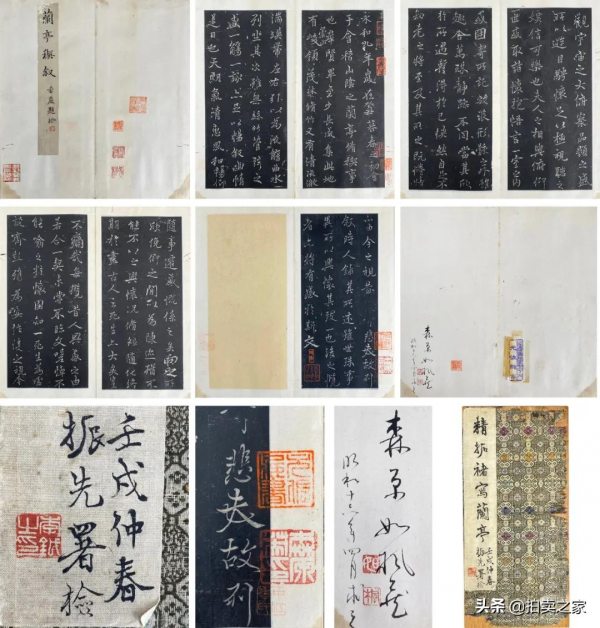 蘭亭禊敘
永和九年歲在癸丑暮春之初會
于會稽山陰之蘭亭脩禊事
也群賢畢至少長咸集此地
有峻領茂林脩竹又有清流激
湍暎帶左右引以為流觴曲水
列坐其次雖無絲竹管弦之
盛一觴一詠亦足以暢敘幽情
是日也天朗氣清惠風和暢仰
觀宇宙之大俯察品類之盛
所以遊目騁懷足以極視聽之
娛信可樂也夫人之相與俯仰
一世或取諸懷抱悟言一室之內
或因寄所託放浪形骸之外雖
趣舍萬殊靜躁不同當其欣
於所遇暫得於己快然自足不
知老之將至及其所之既惓情
隨事遷感慨係之矣向之所
欣俛仰之間以為陳迹猶不
能不以之興懷況脩短隨化終
期於盡古人云死生亦大矣豈
不痛哉每攬昔人興感之由
若合一契未嘗不臨文嗟悼不
能喻之於懷固知一死生為虛
誕齊彭殤為妄作後之視今
亦由今之視昔 悲夫故列
敘時人錄其所述雖世殊事
異所以興懷其致一也後之攬
者亦將有感於斯文
森原如楓
壬戌仲春
振先署檢
悲夫故列
森原如楓
昭和十六年四月求之
精拓褚寫蘭亭
壬戌仲春
振先署檢
头条 @拍卖之家